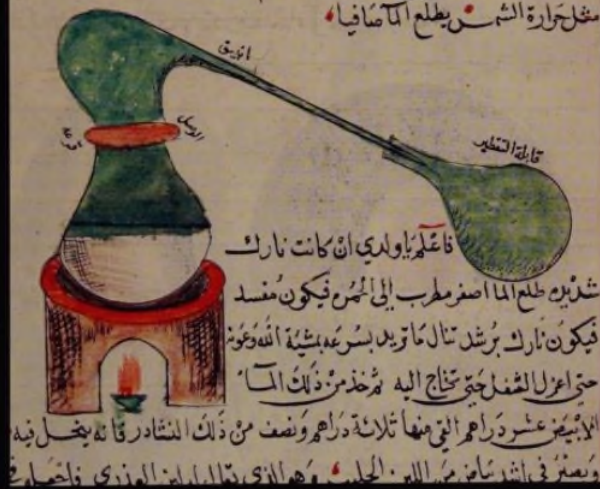 مثل حرارة الشمس يطلع الما صافيا
انبيق
الوصل
قابلة التقطير
فاعلم يا ولدي ان كانت نارك
شديده طلع الما اصفر مطرب إلى الحمره فيكون مفسد
فيكون نارك برشد تنال ما تريد بسرعه بمشية الله وعونه
حتى اعزل الثفل حتى تحتاج اليه ثم خذ من ذلك الما
الابيض عشر دراهم القي منها ثلاثة دراهم ونصف من ذلك النشادر فانه ينحل فيه
ويصير في اشد بياض من اللبن الحليب وهو الذي